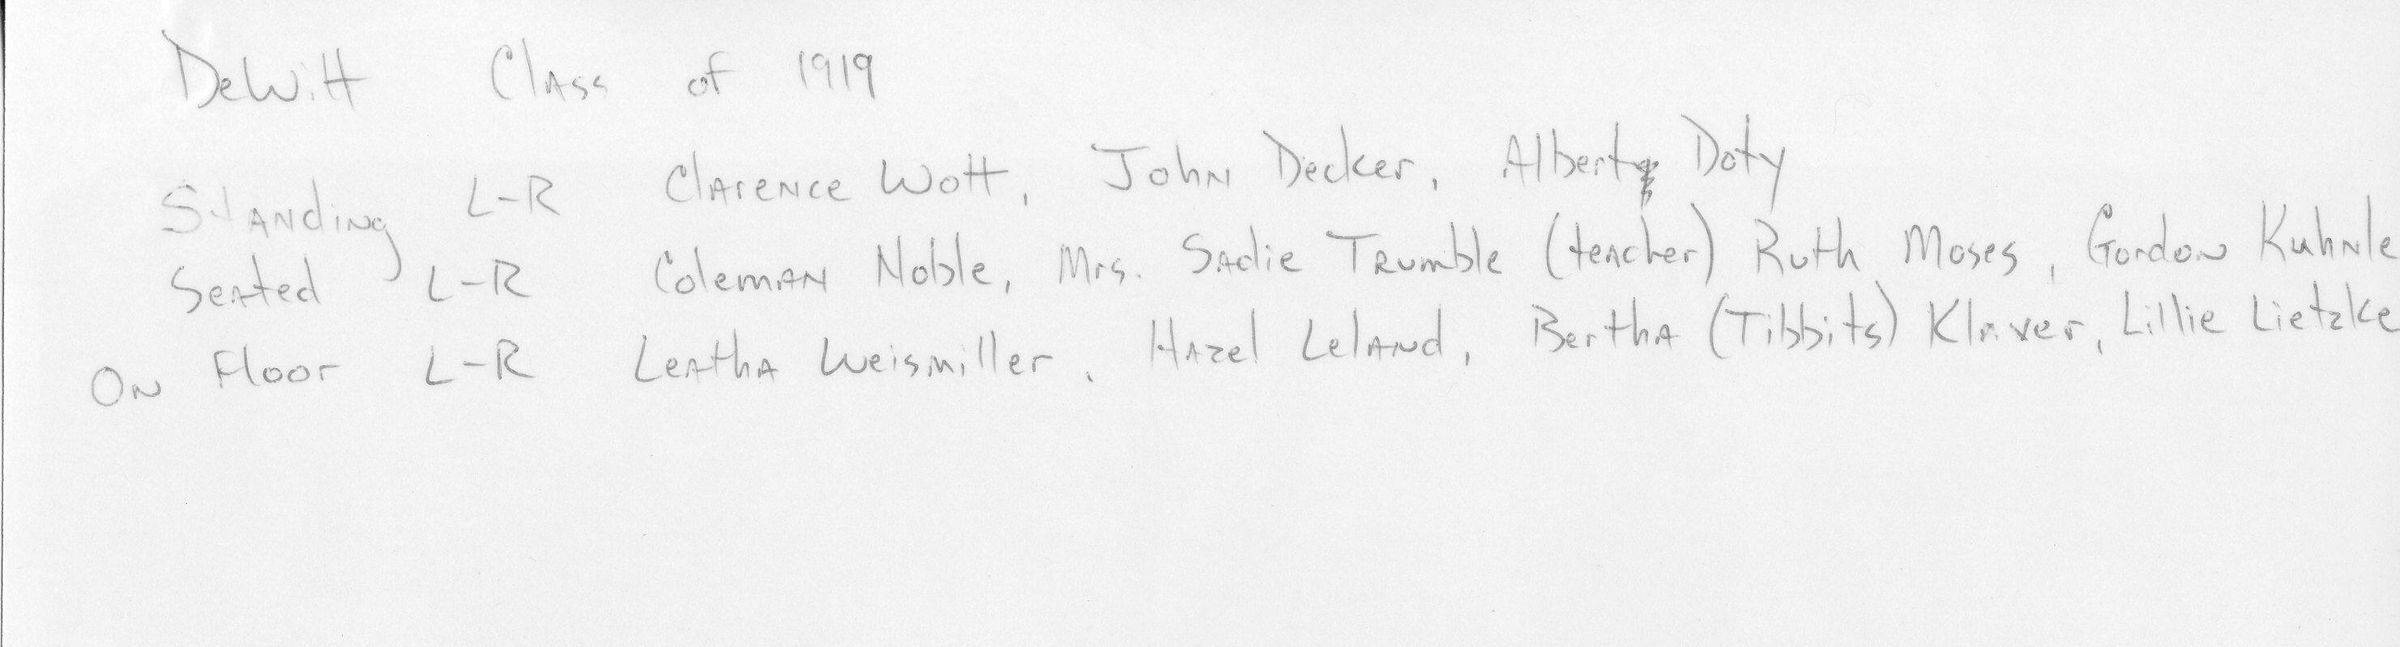 DeWitt Class of 1919
Standing L-R Clarence Wott, John Decker, Albert Doty
Seated L-R Coleman Noble, Mrs. Sadie Trumble (teacher) Ruth Moses, Gordon Kuhnle
On Floor L-R Leatha Weismiller, Hazel Leland, Bertha (Tibbits) Klaver, Lillie Lietzke